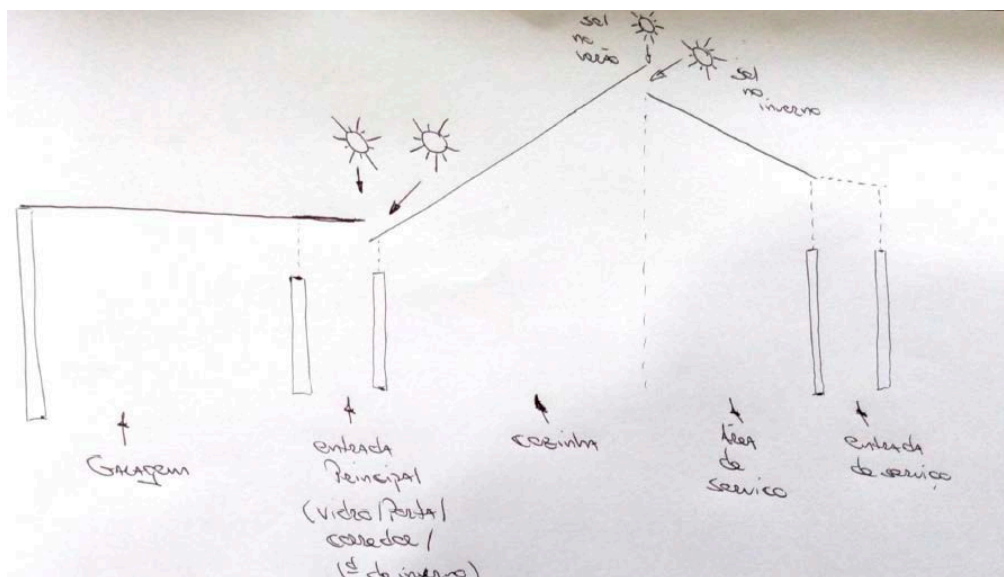 sol
no
verão
sol
no
inverno
Garagem
entrada
Principal
(vidro/Porta/
corredor/
jd de inverno)
cozinha
Área
de
serviço
entrada
de serviço